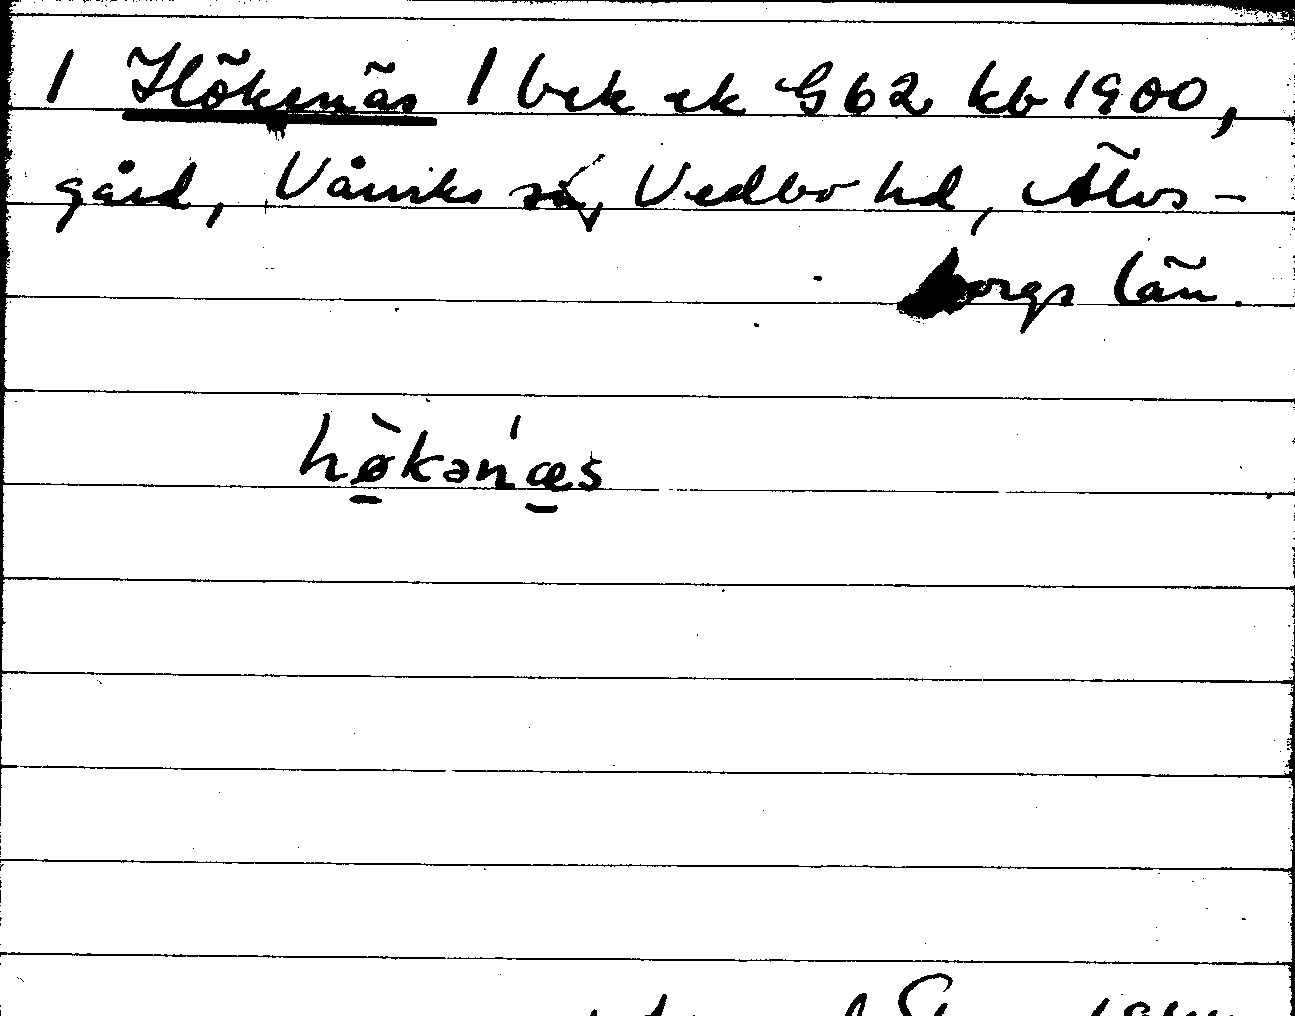 1 Hökenäs 1 bek ek G62 kb 1900,
gård, Vårviks sn, Vedbo hd, Älvs-
borgs län.
hø̀kən'æs